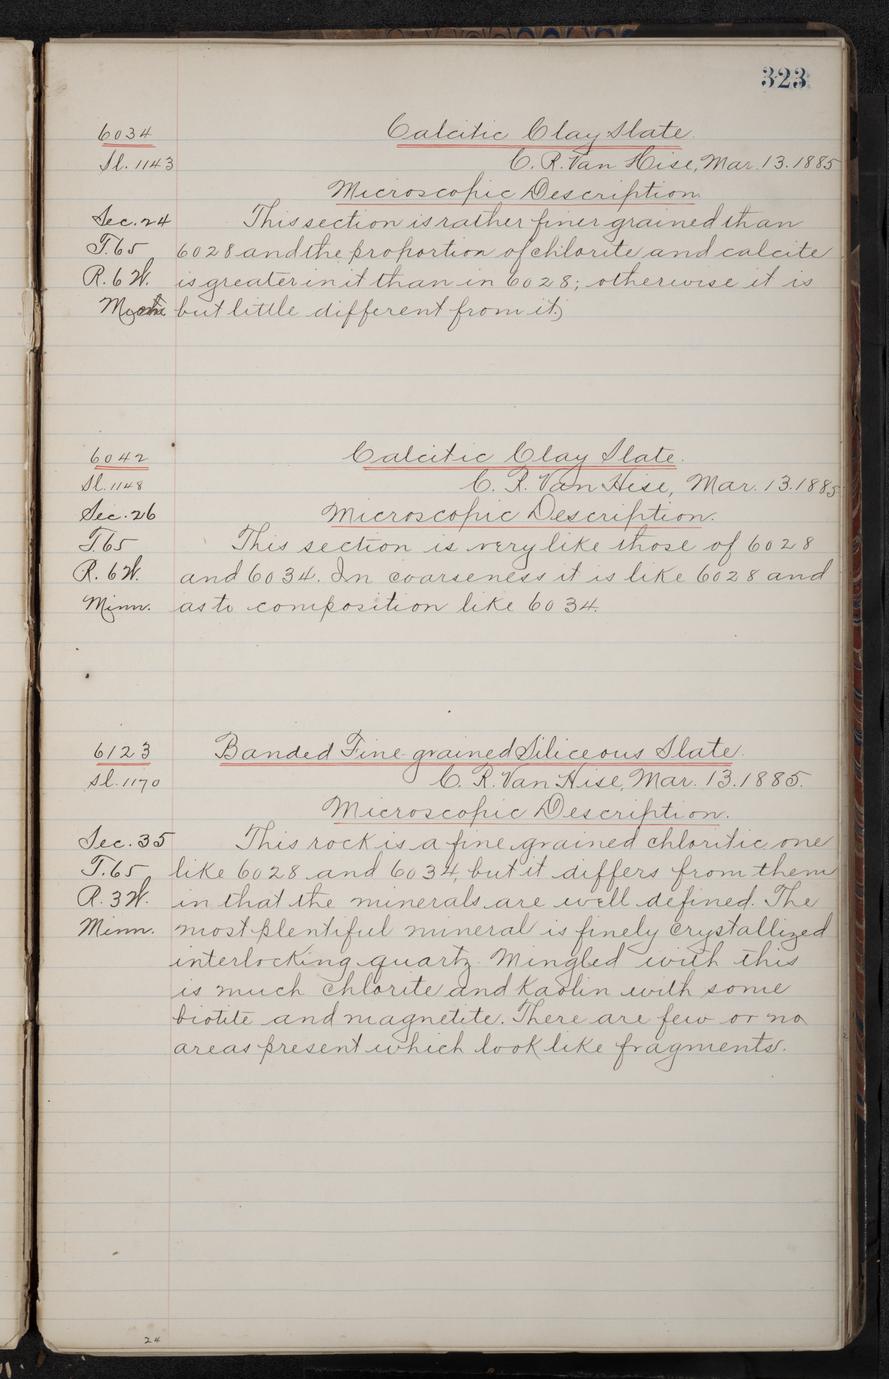 323
6034 Calcitic Clay Slate.
Sl. 1143 C. R. Van Hise, Mar. 13. 1885
Microscopic Description.
Sec. 24 This section is rather finer grained than
T. 65 6028 and the proportion of chlorite and calcite
R. 6 W. is greater in it than in 6028; otherwise it is
but little different from it.
6042 Calcitic Clay Slate.
Sl. 1148 C. R. Van Hise, Mar. 13. 1885
Sec. 26 Microscopic Description.
T. 65 This section is very like those of 6028
R. 6 W. and 6034. In coarseness it is like 6028 and
Minn. as to composition like 6034.
6123 Banded Fine-grained Siliceous Slate.
Sl. 1170 C. R. Van Hise, Mar. 13. 1885.
Microscopic Description.
Sec. 35 This rock is a fine grained chloritic one
T. 65 like 6028 and 6034, but it differs from them
R. 3 W. in that the minerals are well defined. The
Minn. most plentiful mineral is finely crystallized
interlocking quartz. Mingled with this
is much chlorite and kaolin with some
biotite and magnetite. There are few or no
areas present which look like fragments.
24